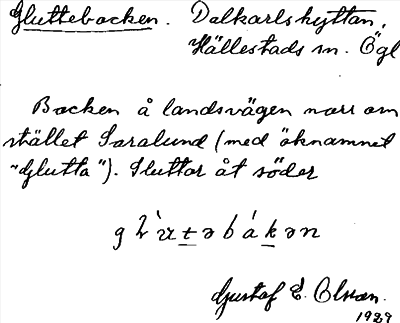 Gluttebacken. Dalkarlshyttan,
Hällestads sn. Ögl
Backen å landsvägen norr om
stället Saralund (med öknamnet
"Glutta"). Sluttar åt söder
Gustaf E. Olson.
1929